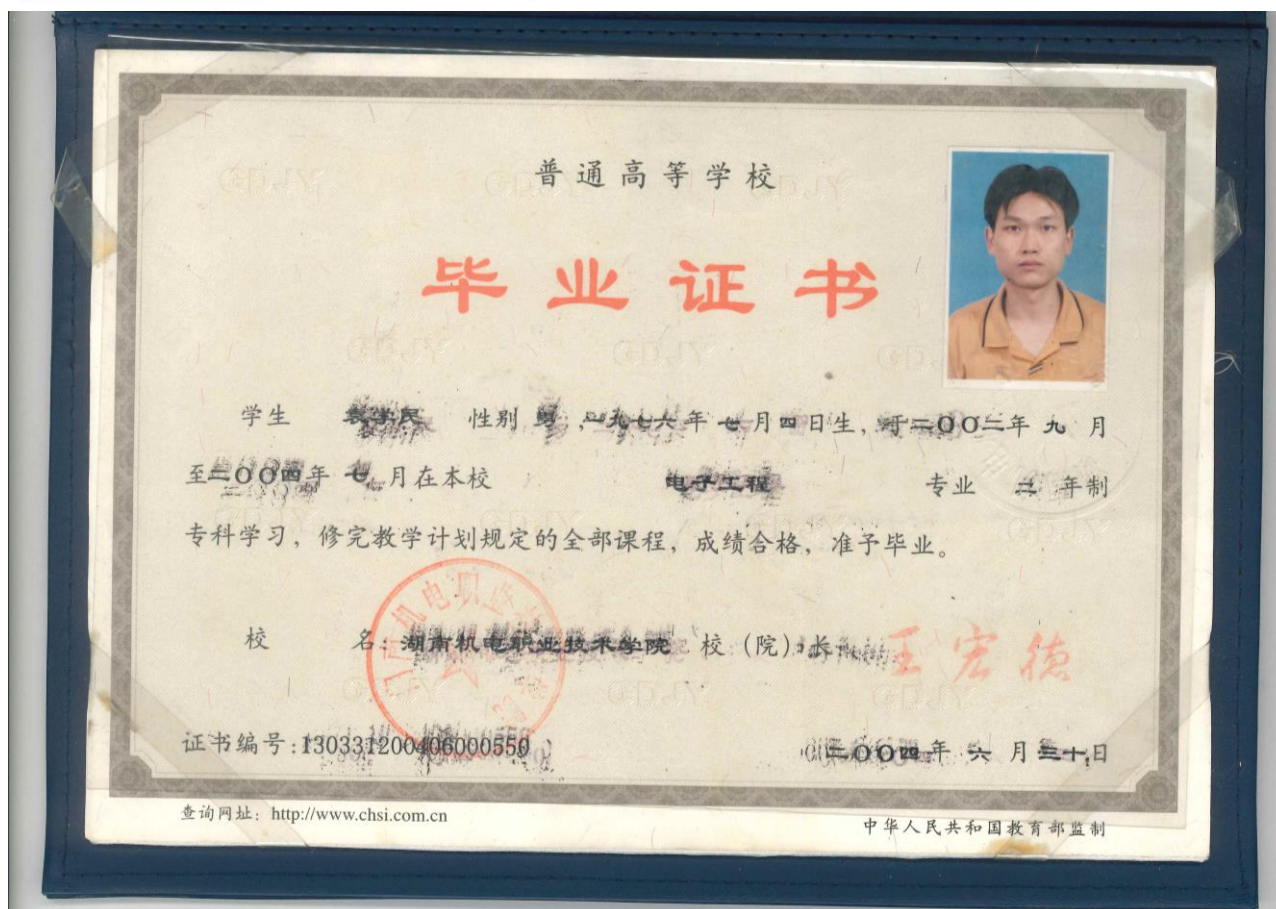 普通高等学校
毕业证书
学生 袁学民 性别 男，一九七六年七月四日生，于二〇〇二年九月
至二〇〇四年七月在本校 电子工程 专业 二 年制
专科学习，修完教学计划规定的全部课程，成绩合格，准予毕业。
校 名：湖南机电职业技术学院 校（院）长： 王宏德
证书编号：130331200406000550 二〇〇四年六月三十日
查询网址：http://www.chsi.com.cn 中华人民共和国教育部监制